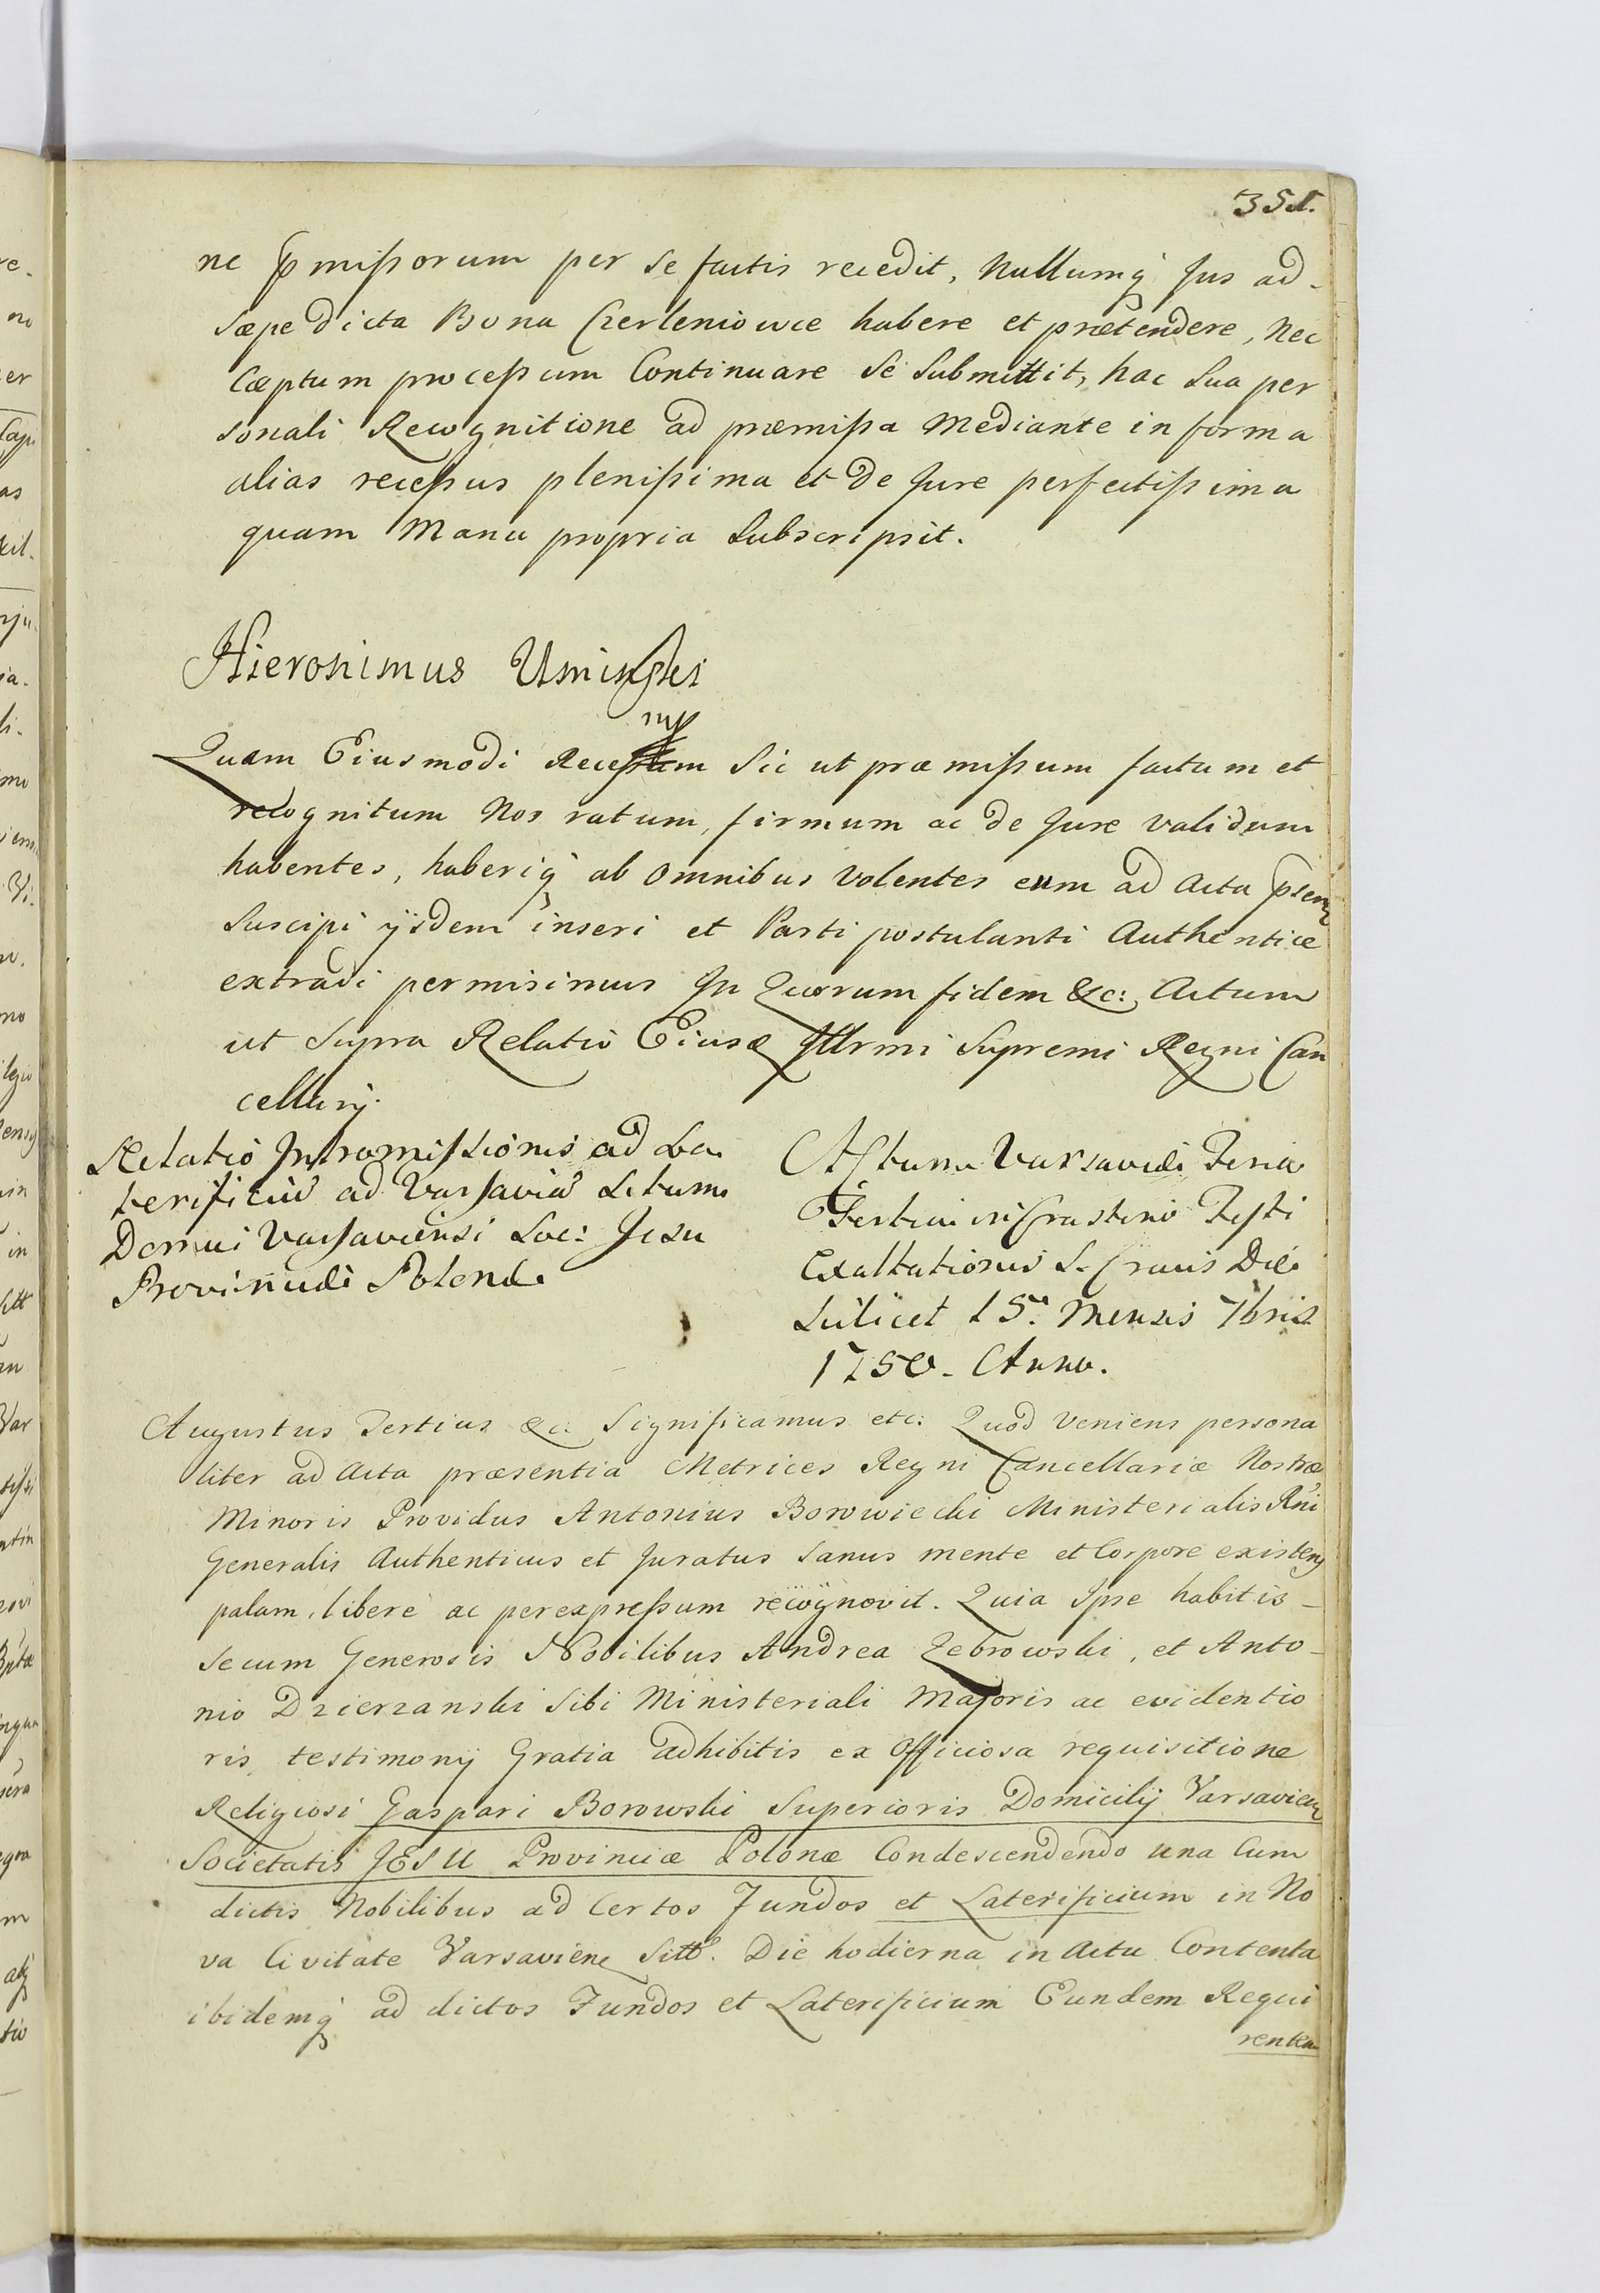 351.
ne pmissorum per se factis recedit, Nullumq Jus ad-
sæpe dicta Bona Czerleniowce habere et prætendere, Nec
Cæptum processum Continuare se submittit, hac sua per
sonali Recognitione ad præmissa Mediante in forma
alias recessus plenissima et de Jure perfectissima
quam Manu propria subscripsit.
Hieronimus Uminski
mp
Quam Eiusmodi Recessum sic ut præmissum factum et
recognitum Nos ratum, firmum ac de Jure validum
habentes, haberiq ab Omnibus Volentes eum ad Acta psen
suscipi ijsdem inseri et Parti postulanti Authentice
extradi permisimus In Quorum fidem &c: Actum
ut supra Relatio Eiusd Illrmi Supremi Regni Can
cellarij.
Relatio Intromissionis ad La
terificiu ad Varsavia situm
Domui Varsaviensi Soc: Jesu
Provinciæ Polonæ
Actum Varsaviæ Feria
Tertia in Crastino Festi
Exaltationis S. Crucis Die
scilicet 15a Mensis 7bris
1750. Anno.
Augustus Tertius &c: Significamus etc: Quod Veniens persona
liter ad Acta præsentia Metrices Regni Cancellariæ Nostræ
Minoris Providus Antonius Borowiecki Ministerialis Rni
Generalis Authenticus et Juratus sanus mente et Corpore existens
palam, libere ac per expressum recognovit. Quia Ipse habitis
secum Generosis Nobilibus Andrea Zebrowski, et Anto-
nio Dzierzanski sibi Ministeriali Majoris ac evidentio
ris testimonij Gratia adhibitis ex Officiosa requisitione
Religiosi Gaspari Borowski Superioris Domicilij Varsavien
Societatis JESU Provinciæ Polonæ Condescendendo una Cum
dictis Nobilibus ad Certos Fundos et Laterificium in No
va Civitate Varsavien sitt. Die hodierna in Actu Contenta
ibidemq ad dictos Fundos et Laterificium Eundem Requi